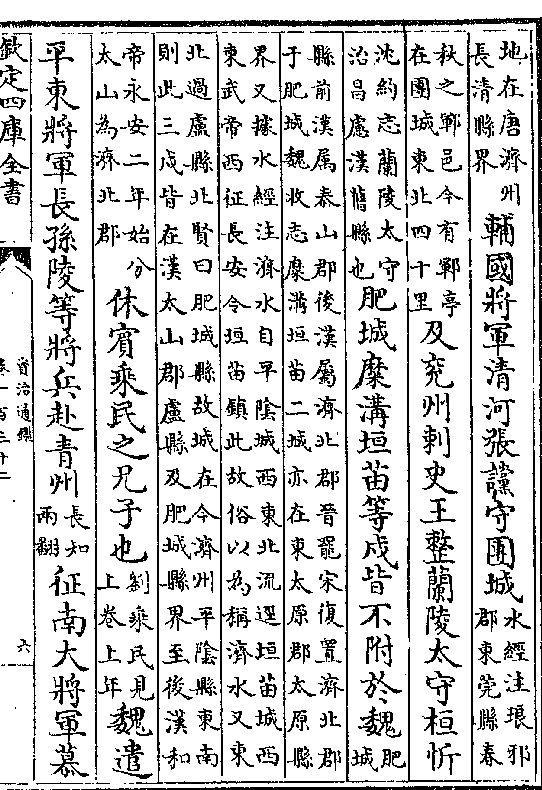 地在唐濟州
長清縣界
輔國將軍清河張讜守團城
水經注琅邪
郡東莞縣春
秋之鄆邑今有鄆亭
在團城東北四十里
及兖州刺史王整蘭陵太守桓忻
沈約志蘭陵太守
治昌慮漢舊縣也
肥城糜溝垣苗等戍皆不附於魏
肥
城
縣前漢属泰山郡後漢屬濟北郡晉罷宋復置濟北郡
于肥城魏收志糜溝垣苗二城亦在東太原郡太原縣
界又據水經注濟水自平陰城西東北流逕垣苗城西
東武帝西征長安令垣苗鎮此故俗以為稱濟水又東
北過盧縣北賢曰肥城縣故城在今濟州平陰縣東南
則此三戍皆在漢太山郡盧縣及肥城縣界至後漢和
帝永安二年始分
太山為濟北郡
休賓乘民之兄子也
劉乘民見
上卷上年
魏遣
平東將軍長孫陵等將兵赴青州
長知
兩翻
征南大將軍慕
欽定四庫全書
資治通鑑
卷一百三十二
六